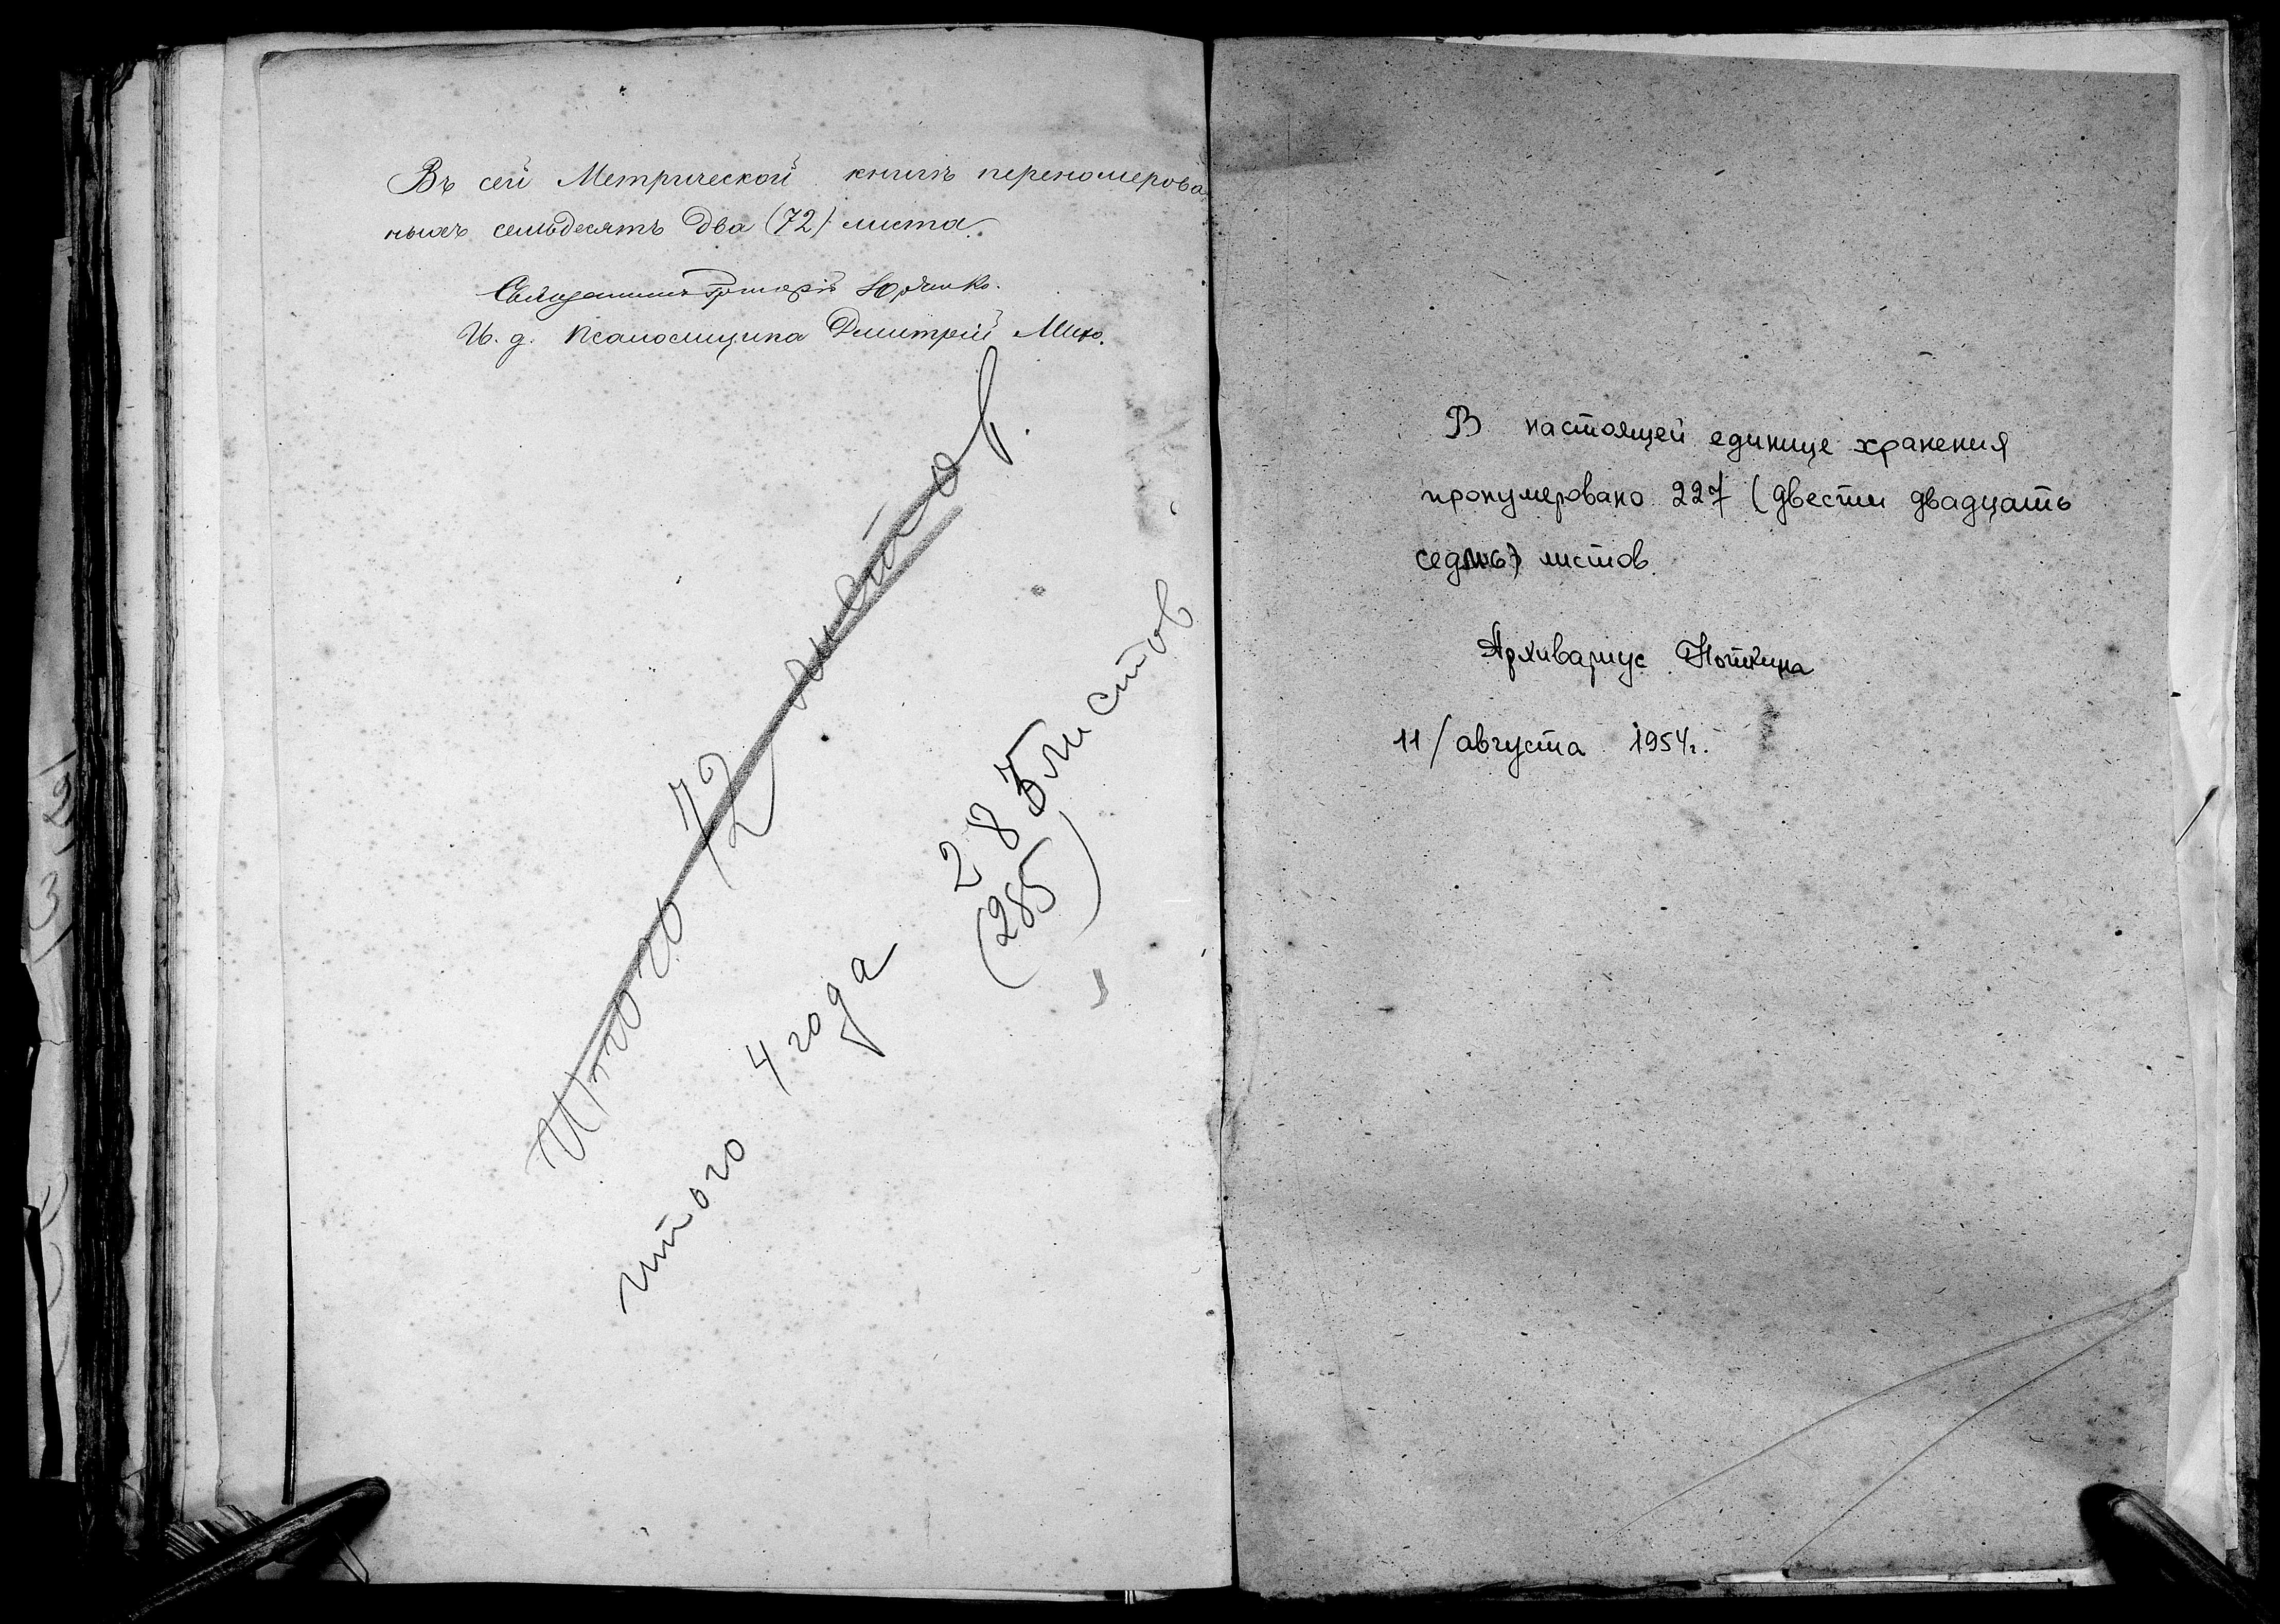 Въ сей Метрической книгѣ переномерова
ныхъ семьдесятъ два (72) листа.
Священникъ Григорій Юрченко.
И. д. Псаломщика Дмитрій
Итого 72 листов.
итого 4 года 285 листов
(285)
В настоящей единице хранения
пронумеровано 227 (двести двадцать
седмь) листов.
Архивариус
11/августа 1954г.